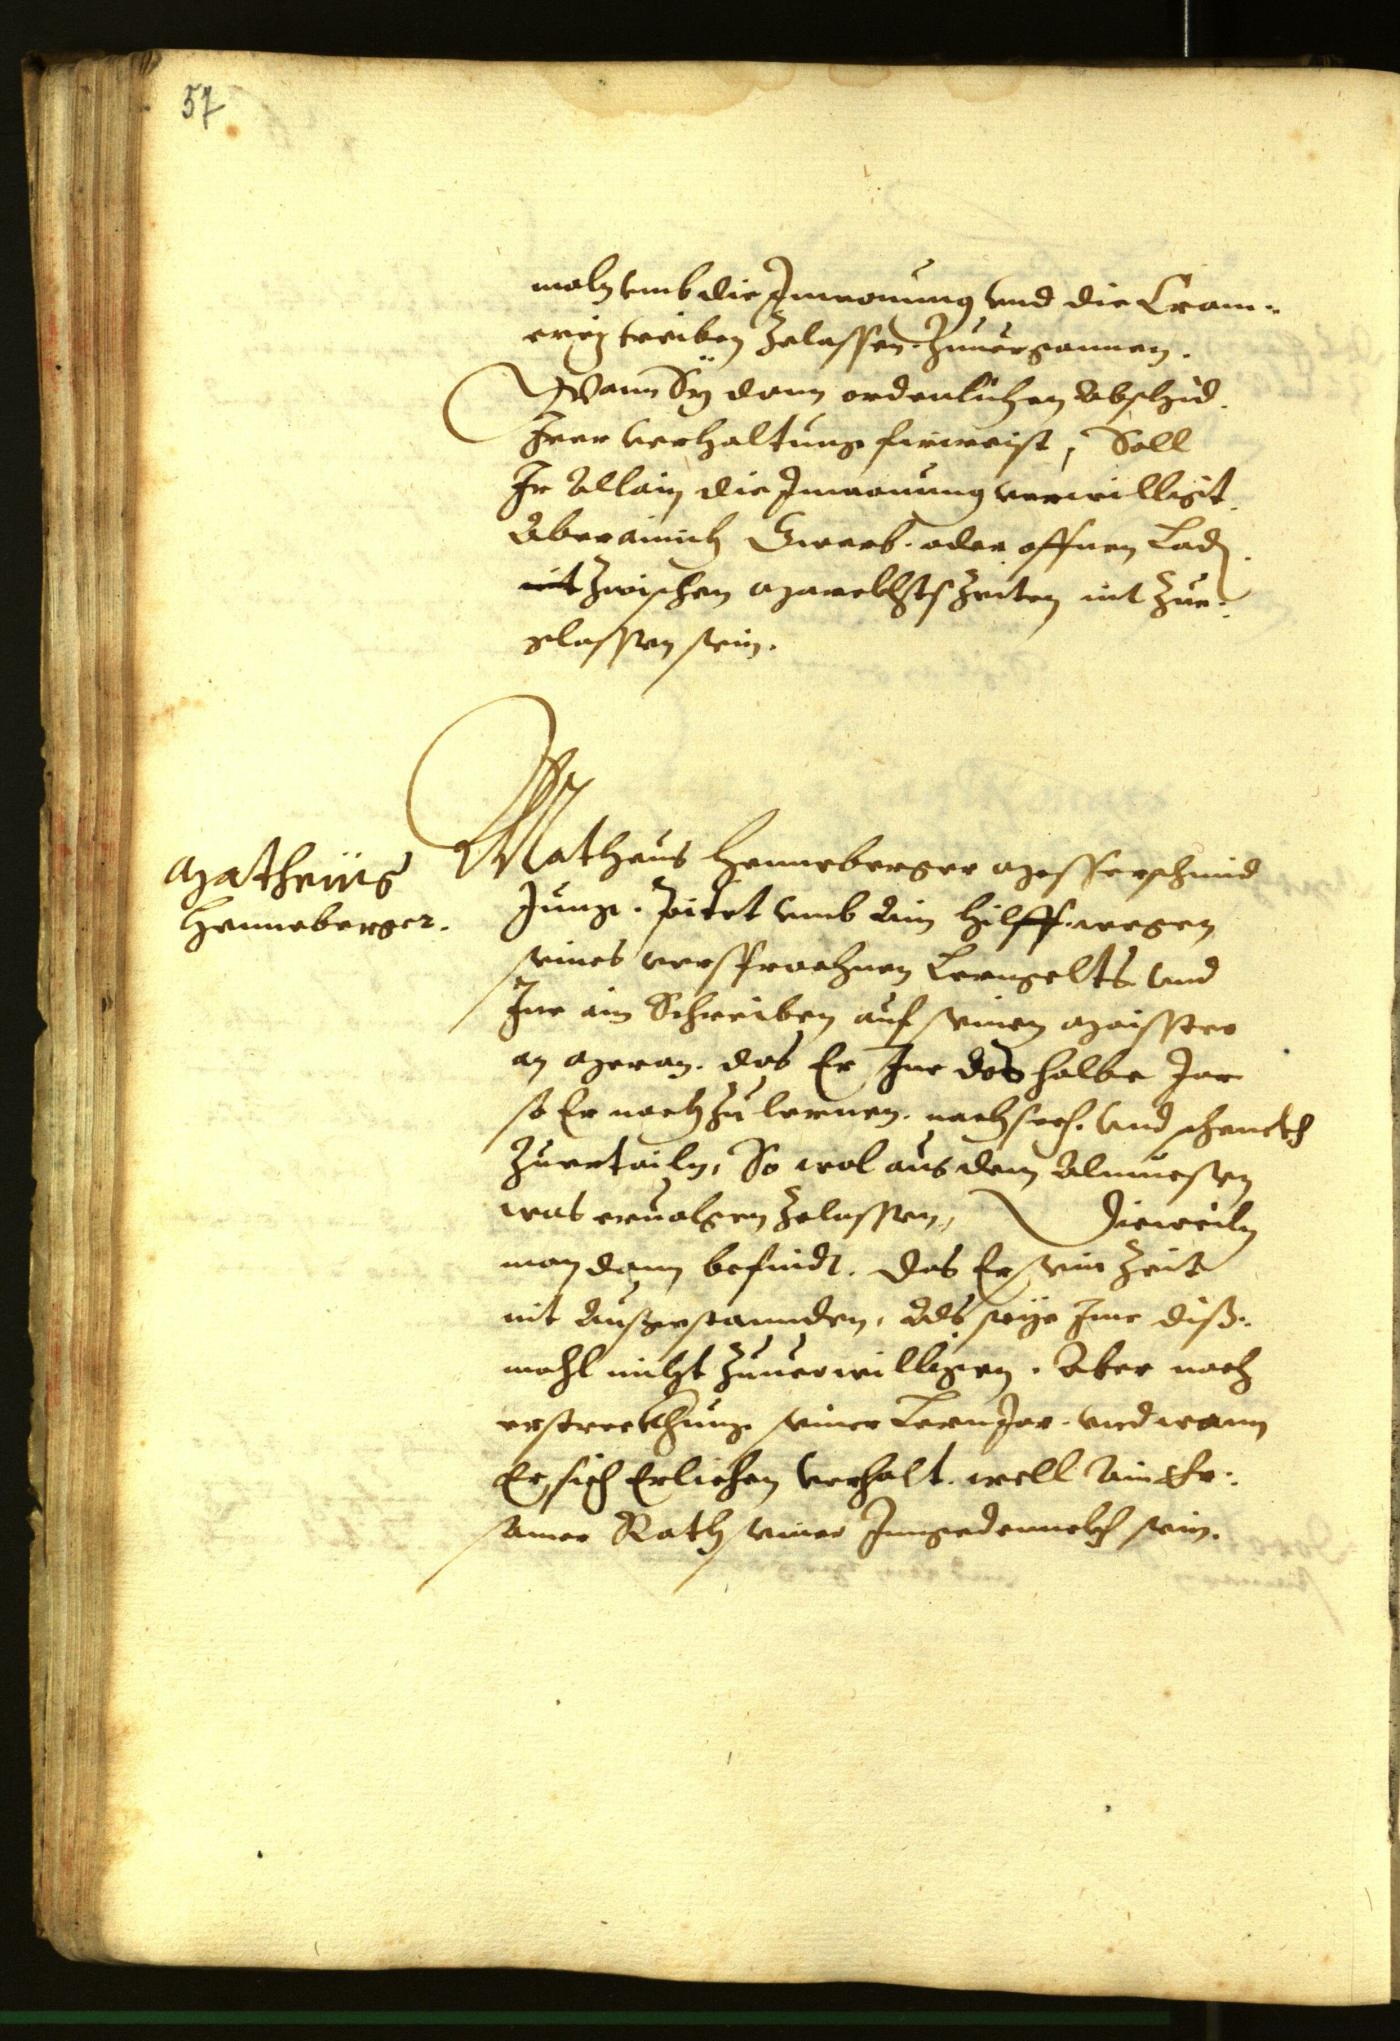 57
maln vmb die Inwonung vnd die Cram¬
erey treiben zelassen. Zuuergonnen.
Wann Sy dann ordenlichen Abschid.
Irer verhaltung fürweist, Soll
Ir Allain die Inwonung verwilligt.
Aber ainich Gwerb. oder offnen Laden
nit zwischen Marckhtszeiten nit Zue¬
glassen sein.
Matheus
Henneberger.
Matheus Henneberger Messerschmid
Jung. pitet vmb Ain hilff wegen
seines versprochnen Lerngelts vnd
Ime ain Schreiben auf seinen Maister
an Meran. das Er Ime das halbe Jar
so Er noch zu lernen. nachsech. vnd schenckh
Zuertailn, So wol aus dem Almuesen
was eruolgen zelassen, Dieweiln
man dann befindt. das Er sein Zeit
nit Außgestannden, Als seye Ime diß¬
mahl nicht Zuuerwilligen. Aber nach
erstreckhung seiner Lern Jar. vnd wann
Er sich Erlichen verhalt. well Ain Er¬
samer Rath seiner Inngedennckh sein.